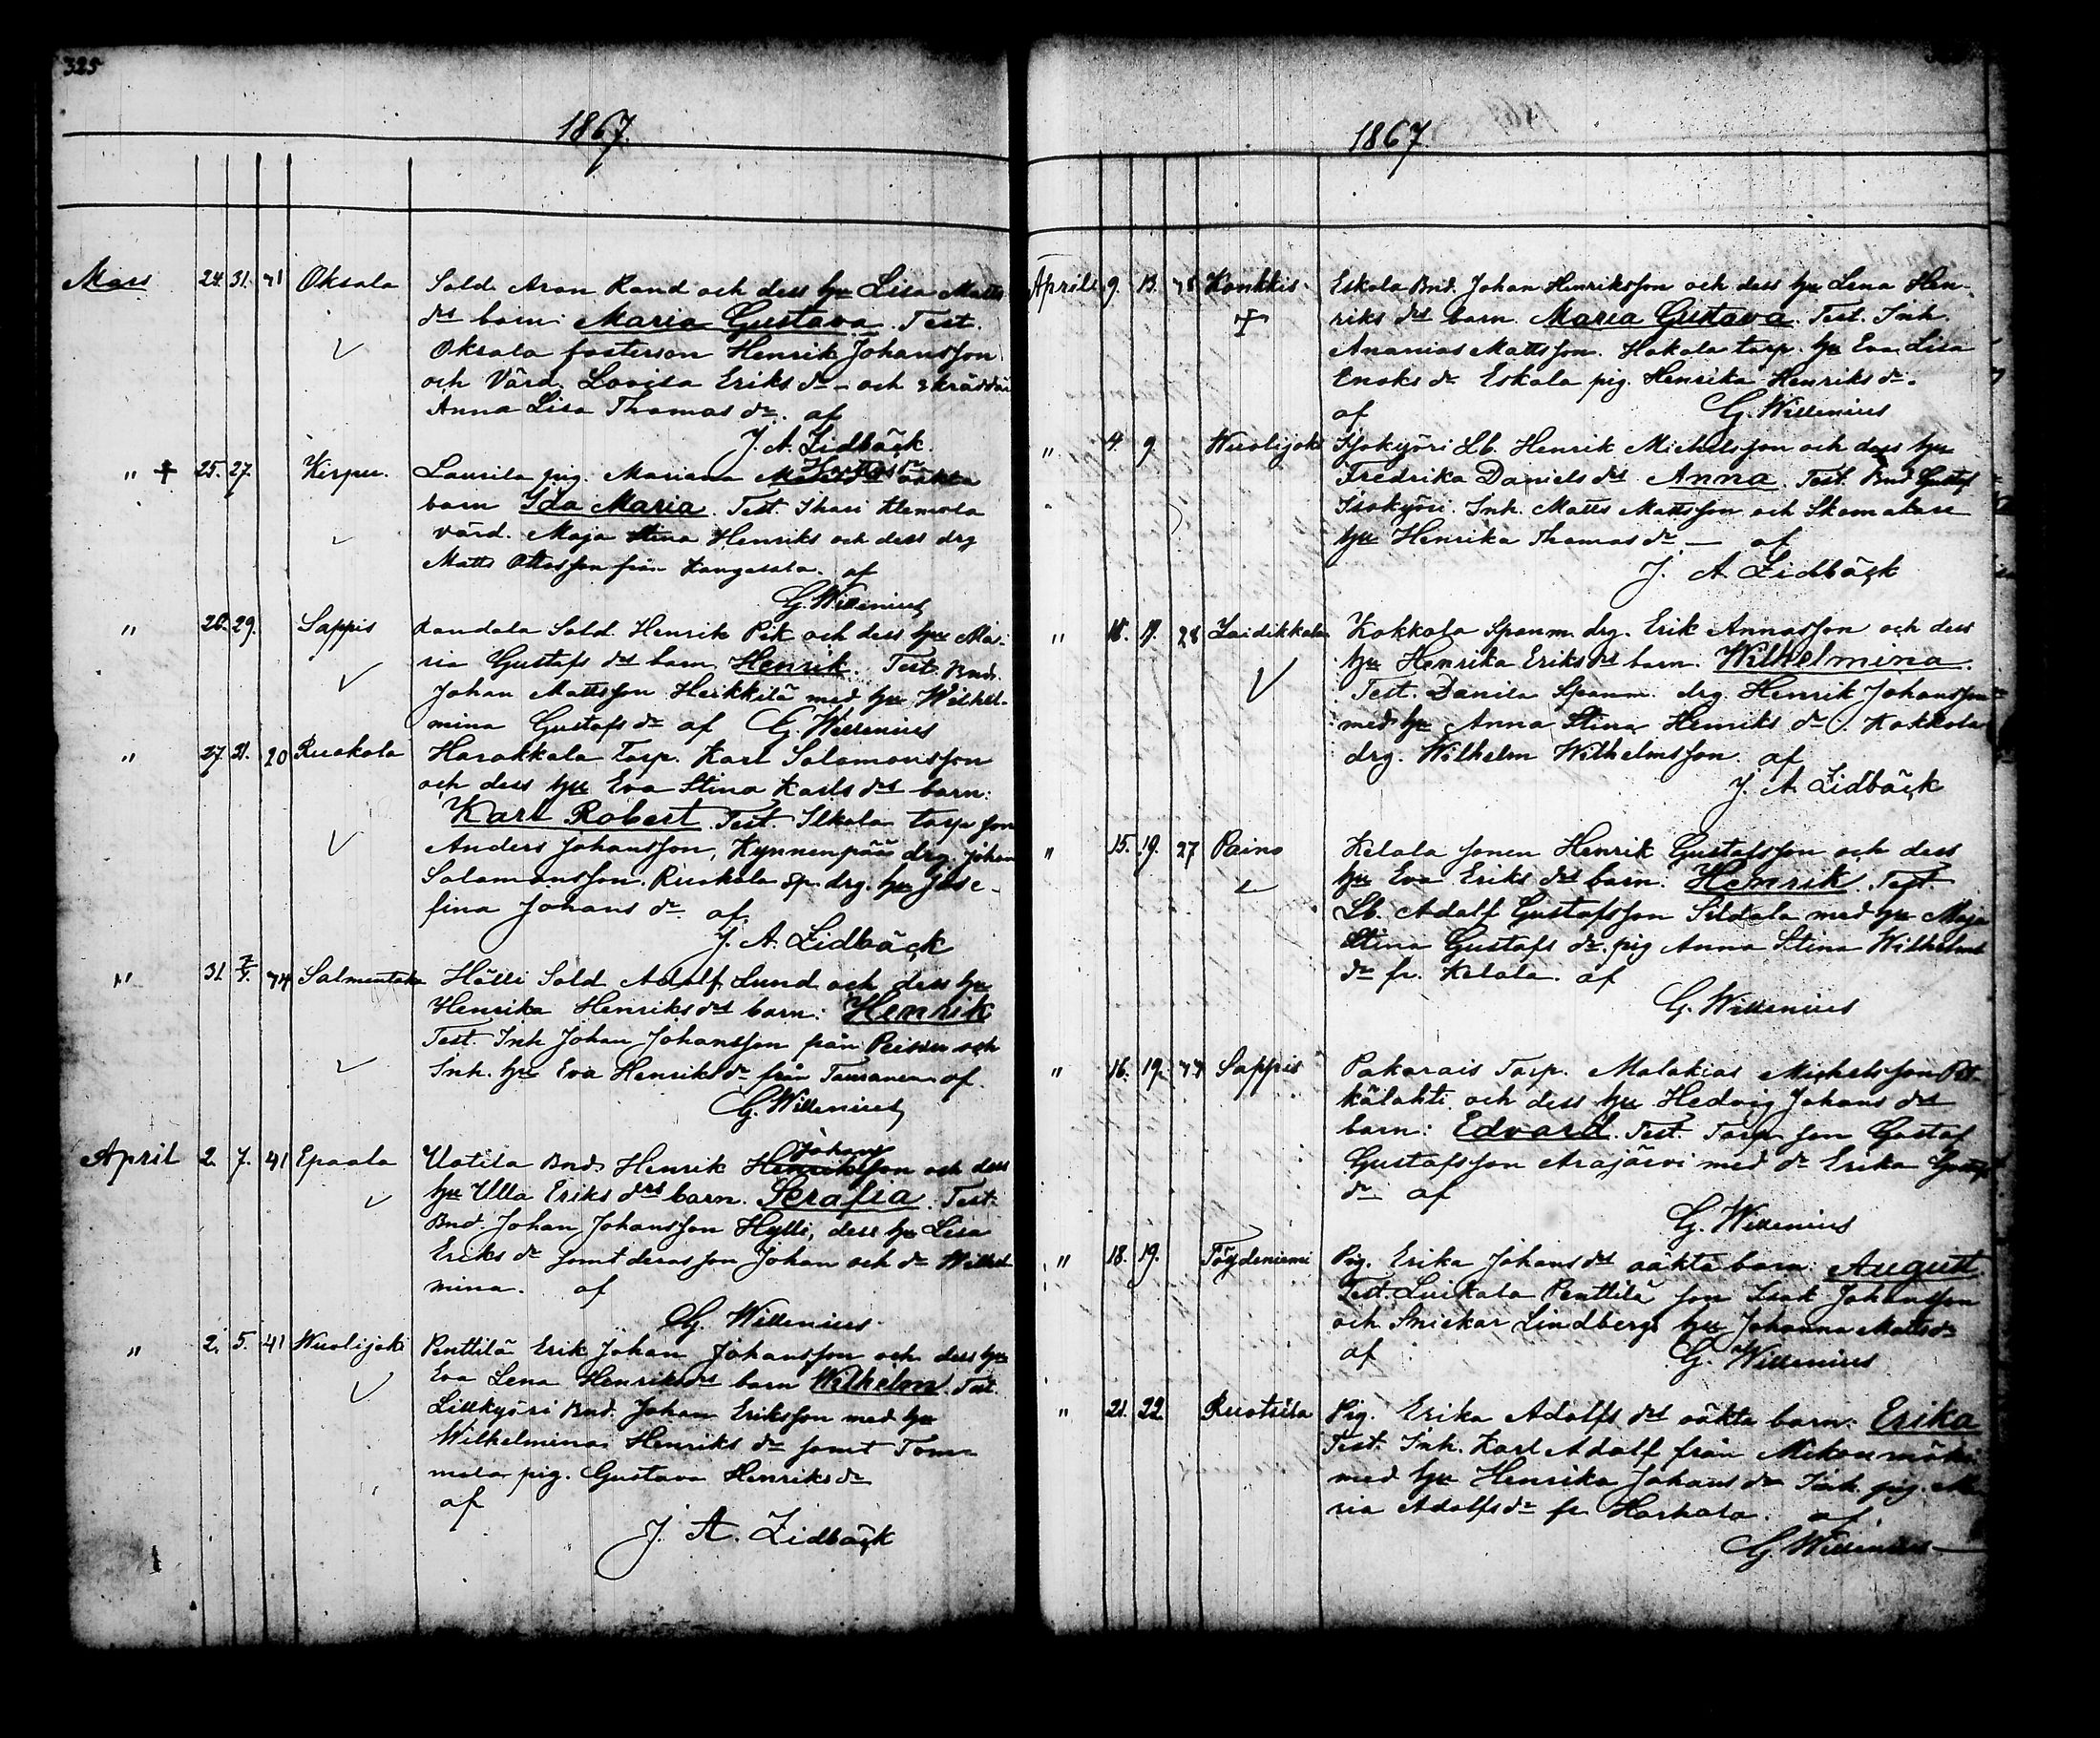 325
1867.
Mars 24. 31. 41 Oksala Sold. Aron Rand och dess hu Lisa Matts
drs barn: Maria Gustava. Test.
Oksala fosterson Henrik Johansson
och Vård. Lovisa Eriks dr – och skräddar
Anna Lisa Thomas dr. af
J. A. Lidbäck.
" + 25. 27. Kirpu. Laurila pig. Mariana oäkta
barn Ida Maria. Test Ihari Klemola
värd. Maja Stina Henriks och dess drg
Matts Ottosson från Kangasala. af
G. Willenius
" 26. 29. Sappis Randala Sold. Henrik Pik och dess hu Ma-
ria Gustafs drs barn Henrik. Test. Bnd.
Johan Mattsson Heikkilä med hu Wilhel-
mina Gustafs dr af G. Willenius
" 27. 31. 20 Ruokola Harakkala Torp. Karl Salomonsson
och dess hu Eva Stina Karls drs barn:
Karl Robert. Test. Ilkala torp son
Anders Johansson, Kynnenpää drg. Johan
Salomonsson. Ruokola sp. drg. hu Jose-
fina Johans dr af
J. A. Lidbäck
" 31 7/4. 44 Salmentaka Hölli Sold Adolf Lund och dess hu
Henrika Henriks drs barn: Henrik
Test. Inh Johan Johansson från och
Inh. hu Eva Henriks dr från af
G. Willenius
April 2. 7. 41 Epaala Uotila Bnd. Henrik Henriksson Johans och dess
hu Ulla Eriks drs barn. Serafia. Test.
Bnd. Johan Johansson Hylli, dess hu Lisa
Eriks dr samt deras son Johan och dr Wilhel-
mina. af
G. Willenius
" 2. 5. 41 Wuolijoki Penttilä Erik Johan Johansson och dess hu
Eva Lena Henriks drs barn Wilhelm. Test.
Lillkyöri Bnd. Johan Eriksson med hu
Wilhelmina Henriks dr samt Tom-
mola pig. Gustava Henriks dr
af
J. A. Lidbäck
1867.
Aprill 9. 13. 48 Konkkis Eskola Bnd. Johan Henriksson och dess hu Lena Hen-
riks drs barn. Maria Gustava. Test. Inh.
Ananias Mattsson. Hakala torp. hu Eva Lisa
Enoks dr Eskola pig. Henrika Henriks dr.
af G. Willenius
" 4. 9. Wuolijoki Isokyöri Lb. Henrik Michelsson och dess hu
Fredrika Daniels drs Anna. Test. Bnd. Gustaf
Isokyöri. Inh. Matts Mattsson och Skomakare
hu Henrika Thomas dr – af
J. A. Lidbäck
" 17. 28 Laidikkala Kokkola Spanm. drg. Erik Annasson och dess
hu Henrika Eriks drs barn. Wilhelmina.
Test. Danila Spanm. drg. Henrik Johansson
med hu Anna Stina Henriks dr. Kokkola
drg. Wilhelm Wilhelmsson. af
J. A. Lidbäck
" 15. 19. 27 Paino Kelala sonen Henrik Gustafsson och dess
hu Eva Eriks drs barn. Henrik. Test
Lb. Adolf Gustafsson Sildala med hu Maja
Stina Gustafs dr. pig Anna Stina Wilhelms
dr fr. Kelala. af
G. Willenius
" 16. 19. 44 Sappis Pakarais Torp. Malakias Michelsson Pit-
kälahti och dess hu Hedvig Johans drs
barn: Edvard. Test. Torp. son Gustaf
Gustafsson Arajärvi med dr Erika Gustafs
dr af
G. Willenius
" 18. 19. Töydeniemi Pig. Erika Johans drs oäkta barn: August.
Test. Luikala Penttilä son Isak Johansson
och Snickar Lindbergs hu Johanna Matts dr
af G. Willenius
" 21. 22. Ruotsila Pig. Erika Adolfs drs oäkta barn. Erika
Test. Inh. Karl Adolf från
med hu Henrika Johans dr Inh. pig. Ma-
ria Adolfs dr fr. Harhala. af
G. Willenius